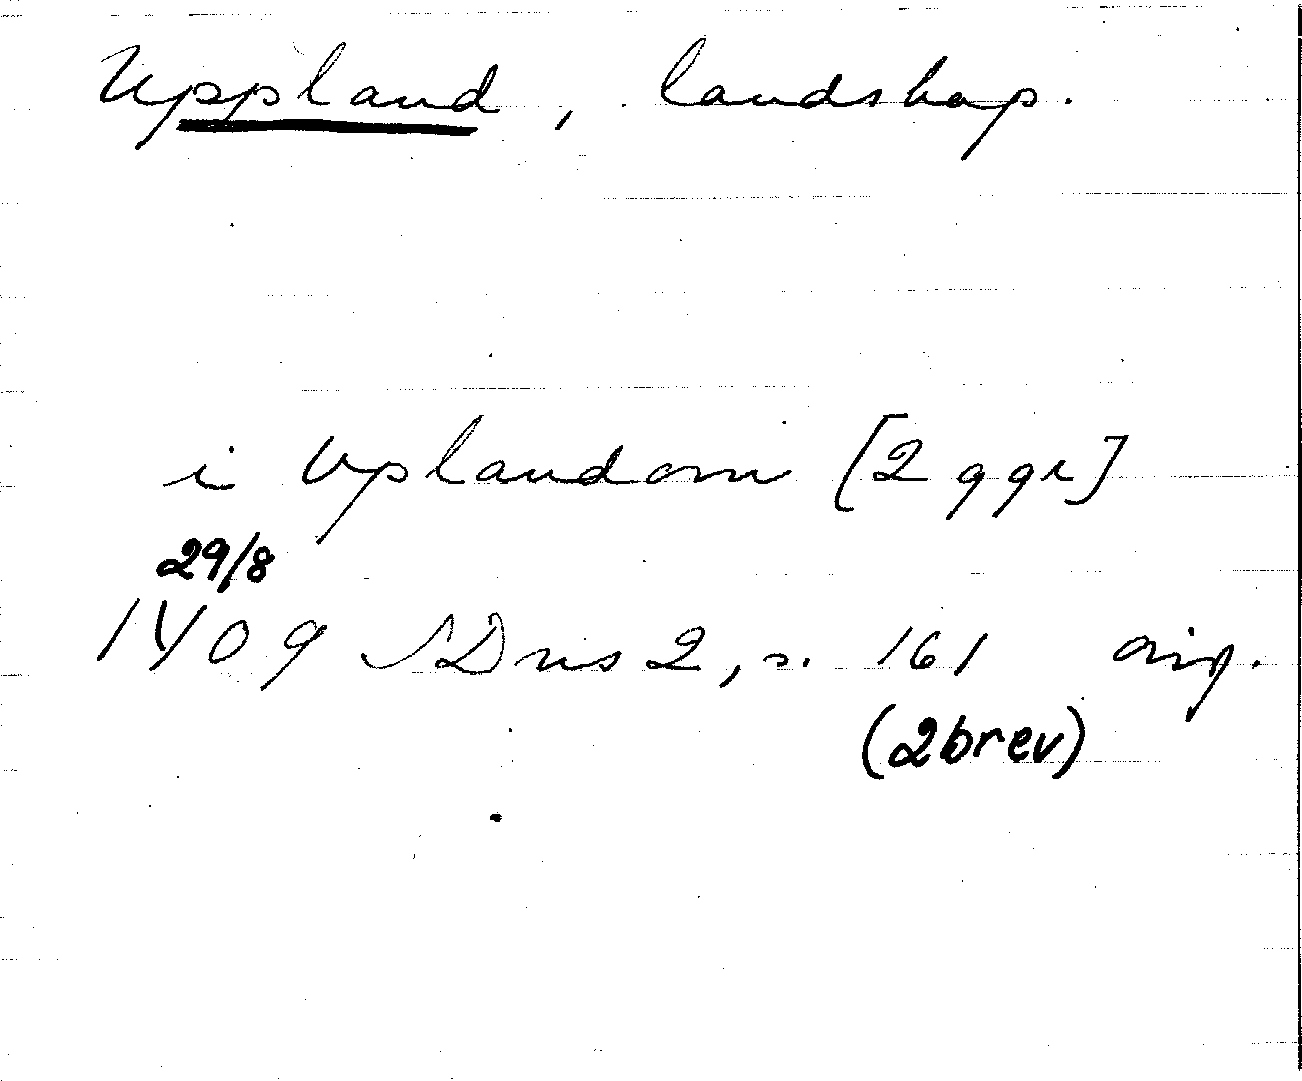 Uppland, landskap.
i Vplandom [2 ggr]
29/8
1409 SDns 2, s. 161 orig.
(2 brev)